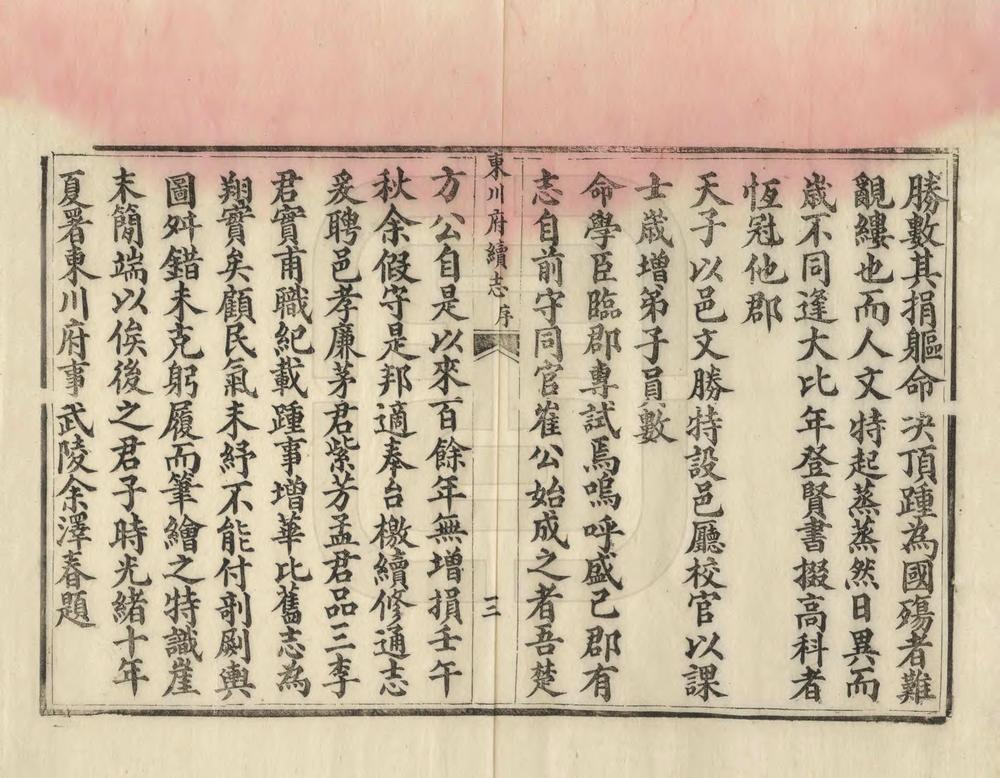 勝數其捐軀命決頂踵為國殤者難
覼縷也而人文特起蒸蒸然日異而
歲不同逢大比年登賢書掇高科者
恆冠他郡
天子以邑文勝特設邑廳校官以課
士歲增弟子員數
命學臣臨郡專試焉嗚呼盛已郡有
志自前守同官崔公始成之者吾楚
東川府續志 序
三
方公自是以來百餘年無增損壬午
秋余假守是邦適奉台檄續修通志
爰聘邑孝廉茅君紫芳孟君品三李
君實甫職紀載踵事增華比舊志為
翔實矣顧民氣未紓不能付剞劂輿
圖舛錯未克躬履而筆繪之特識崖
末簡端以俟後之君子時光緒十年
夏署東川府事武陵余澤春題